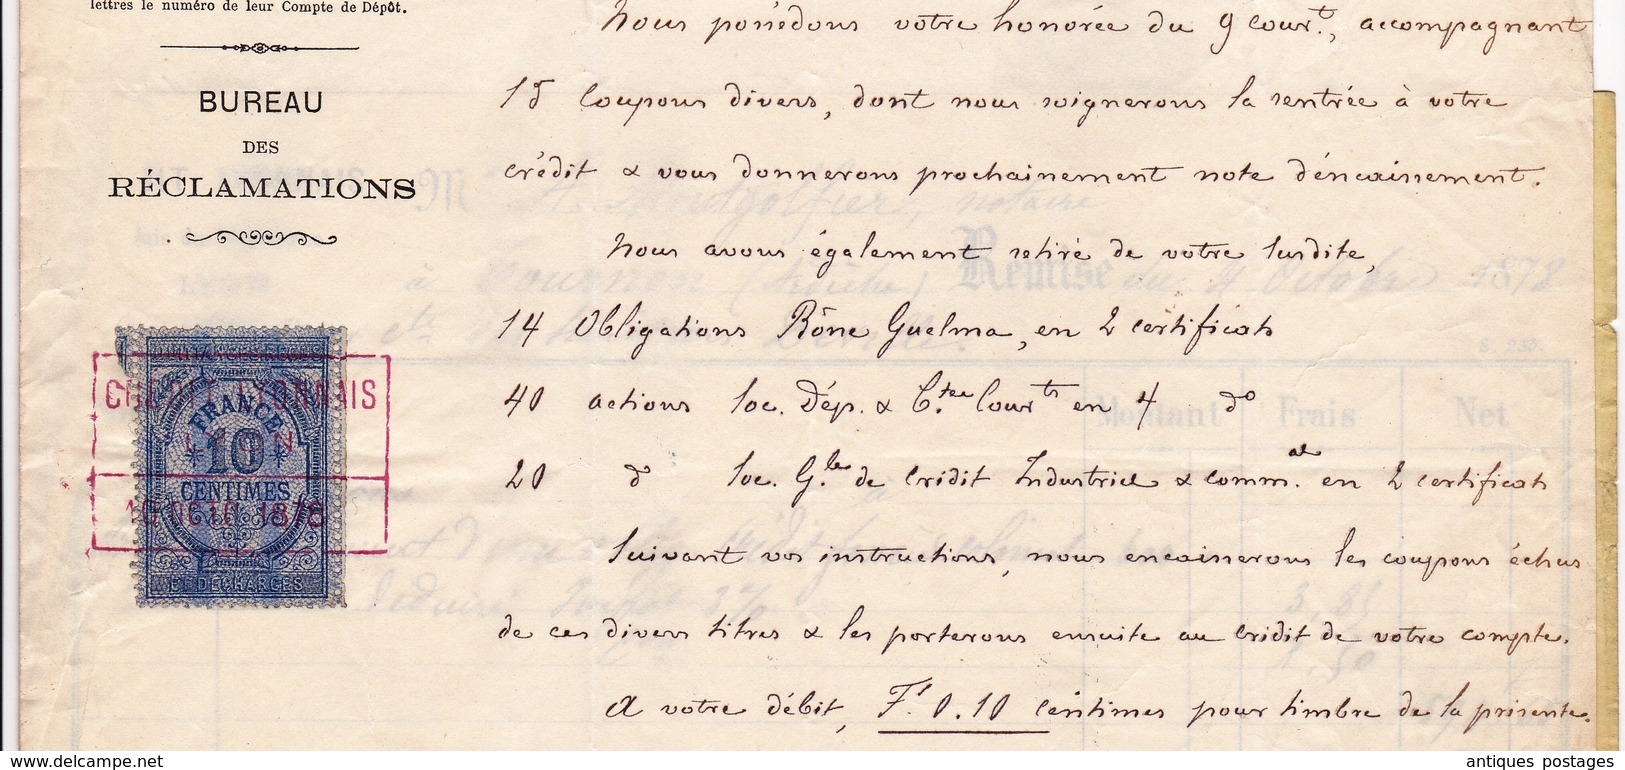 lettres le numéro de leur Compte de Dépôt.
BUREAU
DES
RÉCLAMATIONS
Nous possédons votre honorée du 9 cour.t, accompagnant
15 Coupons divers, dont nous soignerons la rentrée à votre
crédit & vous donnerons prochainement note d'encaissement.
Nous avons également retiré de votre susdite,
14 Obligations Bône Guelma, en 2 certificats
40 actions Soc. Dép. & C.tes Cour.ts en 4 do
20 do Soc. G.le de Crédit Industriel & comm.al en 2 certificats
Suivant vos instructions, nous encaisserons les coupons échus
de ces divers titres & les porterons ensuite au crédit de votre compte.
A votre débit, F.s 0.10 centimes pour timbre de la présente.
QUITTANCES REÇUS
FRANCE
10
CENTIMES
ET DECHARGES
CREDIT LYONNAIS
LYON
10 OCTO 1878
Montgolfier, notaire
à Tournon (Ardèche) Remise du 9 Octobre 1878
S. 233.
Montant Frais Net
3,85
1,50
www.delcampe.net
antiques postages